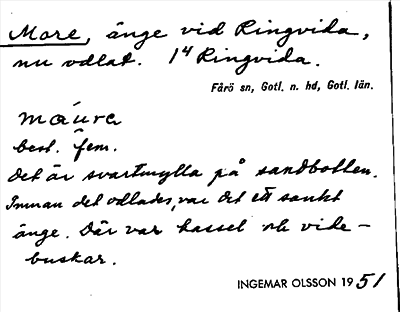 More, änge vid Ringvida,
nu odlat. 1⁴ Ringvida.
Fårö sn, Gotl. n. hd, Gotl. län.
máura
best. fem.
Det är svartmylla på sandbotten.
Innan det odlades, var det ett sankt
änge. Där var hassel och vide-
buskar.
INGEMAR OLSSON 1951